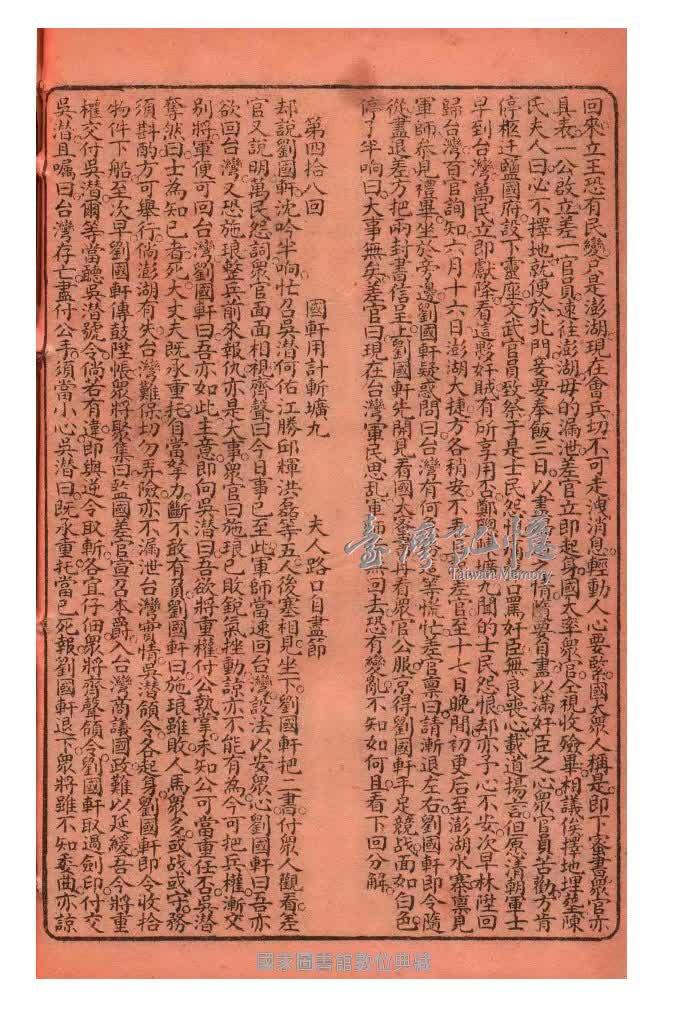 回來立王恐有民變只是澎湖現在會兵切不可走洩消息輕動人心要緊國太衆人稱是即下審書衆官亦
具表一公改立差一官員速往澎湖毋的漏泄差官立即起身國太率衆官仝視收殮畢相議俟擇地埋塟陳
氏夫人曰心不擇地就便於北門妾要奉飯三日以盡之情隨要自盡以滿奸臣之心衆官員苦勸方肯
停柩迁鹽國府設下靈座文武官員致祭于是士民怨罵奸臣無良喪心載道揚言但原清朝軍士
早到台灣萬民立即獻隆看這夥奸賊有所享用否鄭聰壙九聞的士民怨恨却亦子心不安次早林陞回
歸台灣百官詢知六月十六日澎湖大捷方各稍安不表差官至十七日晚間初更后至澎湖水寨禀見
軍師叅見禮畢坐於旁邊劉國軒疑惑問曰台灣有何等慌忙差官禀曰請漸退左右劉國軒即令隨
從盡退差方把兩封書信呈上劉國軒先開見看國太審書再看衆官公服京得劉國軒手足競战面如白色
停了半响曰大事無矣差官曰現在台灣軍民思乱軍師無回去恐有變亂不知如何且看下回分解
第四拾八回 國軒用計斬壙九 夫人路口自盡節
却說劉國軒沈吟半响忙召吳潜何佑江勝邱輝洪磊等五人後塞相見坐下劉國軒把二書付衆人觀看差
官又說明萬民怨詞衆官面面相視齊聲曰今日事已至此軍師當速回台灣設法以安衆心劉國軒曰吾亦
欲回台灣又恐施琅整兵前來報仇亦是大事衆官曰施琅已敗銳氣挫動諒亦不能有為今可把兵權漸交
别將軍便可回台灣劉國軒曰吾亦如此主意即向吳潜曰吾欲將重權付公執掌未知公可當重任否吳潜
奪然曰士為知己者死大丈夫既承重托自當努力斷不敢有負劉國軒曰施琅雖敗人馬衆多或战或守務
須斟酌方可舉行倘澎湖有失台灣難保切勿弄險亦不漏泄台灣實情吳潜領令各起身劉國軒即令收拾
物件下船至次早劉國軒傳鼓陞帳衆將聚集曰監國差官宣召本爵入台灣商議國政難以延緩吾今將重
權交付吳潜爾等當聽吳潜號令倘若有違即與逆令取斬各宜仔佃衆將齊聲領令劉國軒取過劍印付交
吳潜且嘱曰台灣存亡盡付公手須當小心吳潜曰既承重托當已死報劉國軒退下衆將雖不知委曲亦諒
臺灣記憶
Taiwan Memory
國家圖書館數位典藏